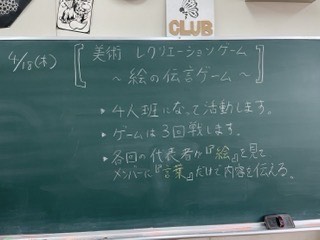 CLUB
4/18(木)
美術 レクリエーションゲーム
～絵の伝言ゲーム～
・4人班になって活動します。
・ゲームは3回戦します。
・各回の代表者が『絵』を見て
メンバーに『言葉』だけで内容を伝える。